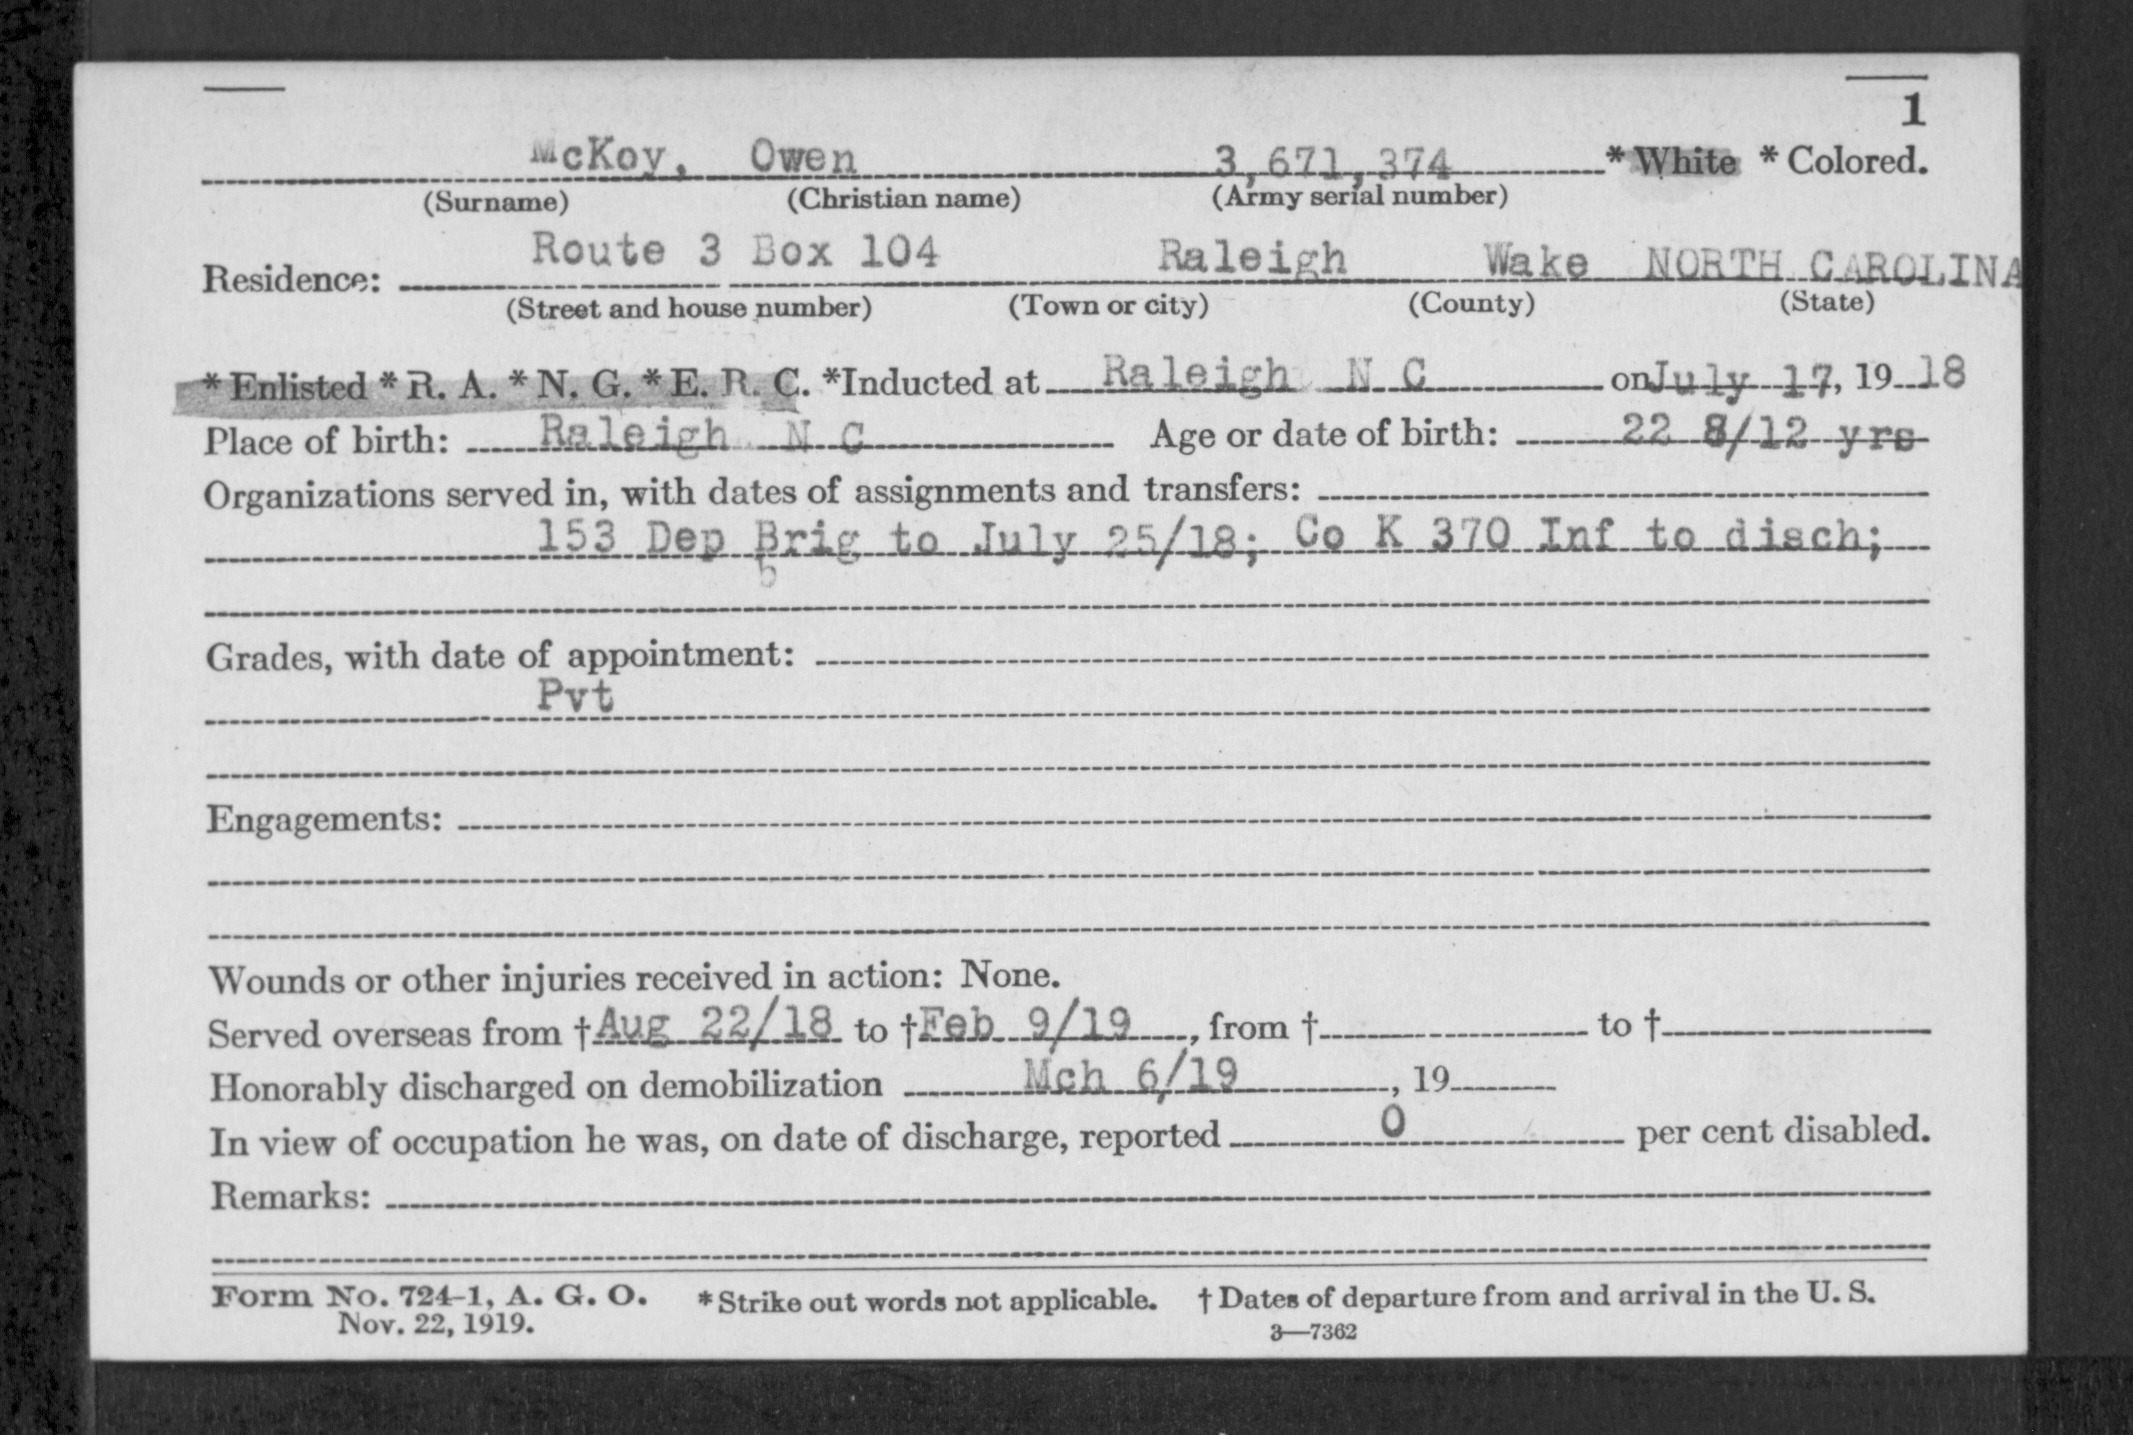 1
McKoy, Owen 3,671,374 * White * Colored.
(Surname) (Christian name) (Army serial number)
Residence: Route 3 Box 104 Raleigh Wake NORTH CAROLINA
(Street and house number) (Town or city) (County) (State)
* Enlisted * R. A. * N. G. * E. R. C. *Inducted at Raleigh N C on July 17, 19 18
Place of birth: Raleigh N C Age or date of birth: 22 8/12 yrs
Organizations served in, with dates of assignments and transfers:
153 Dep Brig to July 25/18; Co K 370 Inf to disch;
Grades, with date of appointment:
Pvt
Engagements:
Wounds or other injuries received in action: None.
Served overseas from † Aug 22/18 to † Feb 9/19, from † to †
Honorably discharged on demobilization Mch 6/19, 19
In view of occupation he was, on date of discharge, reported 0 per cent disabled.
Remarks:
Form No. 724-1, A. G. O. * Strike out words not applicable. † Dates of departure from and arrival in the U. S.
Nov. 22, 1919. 3—7362